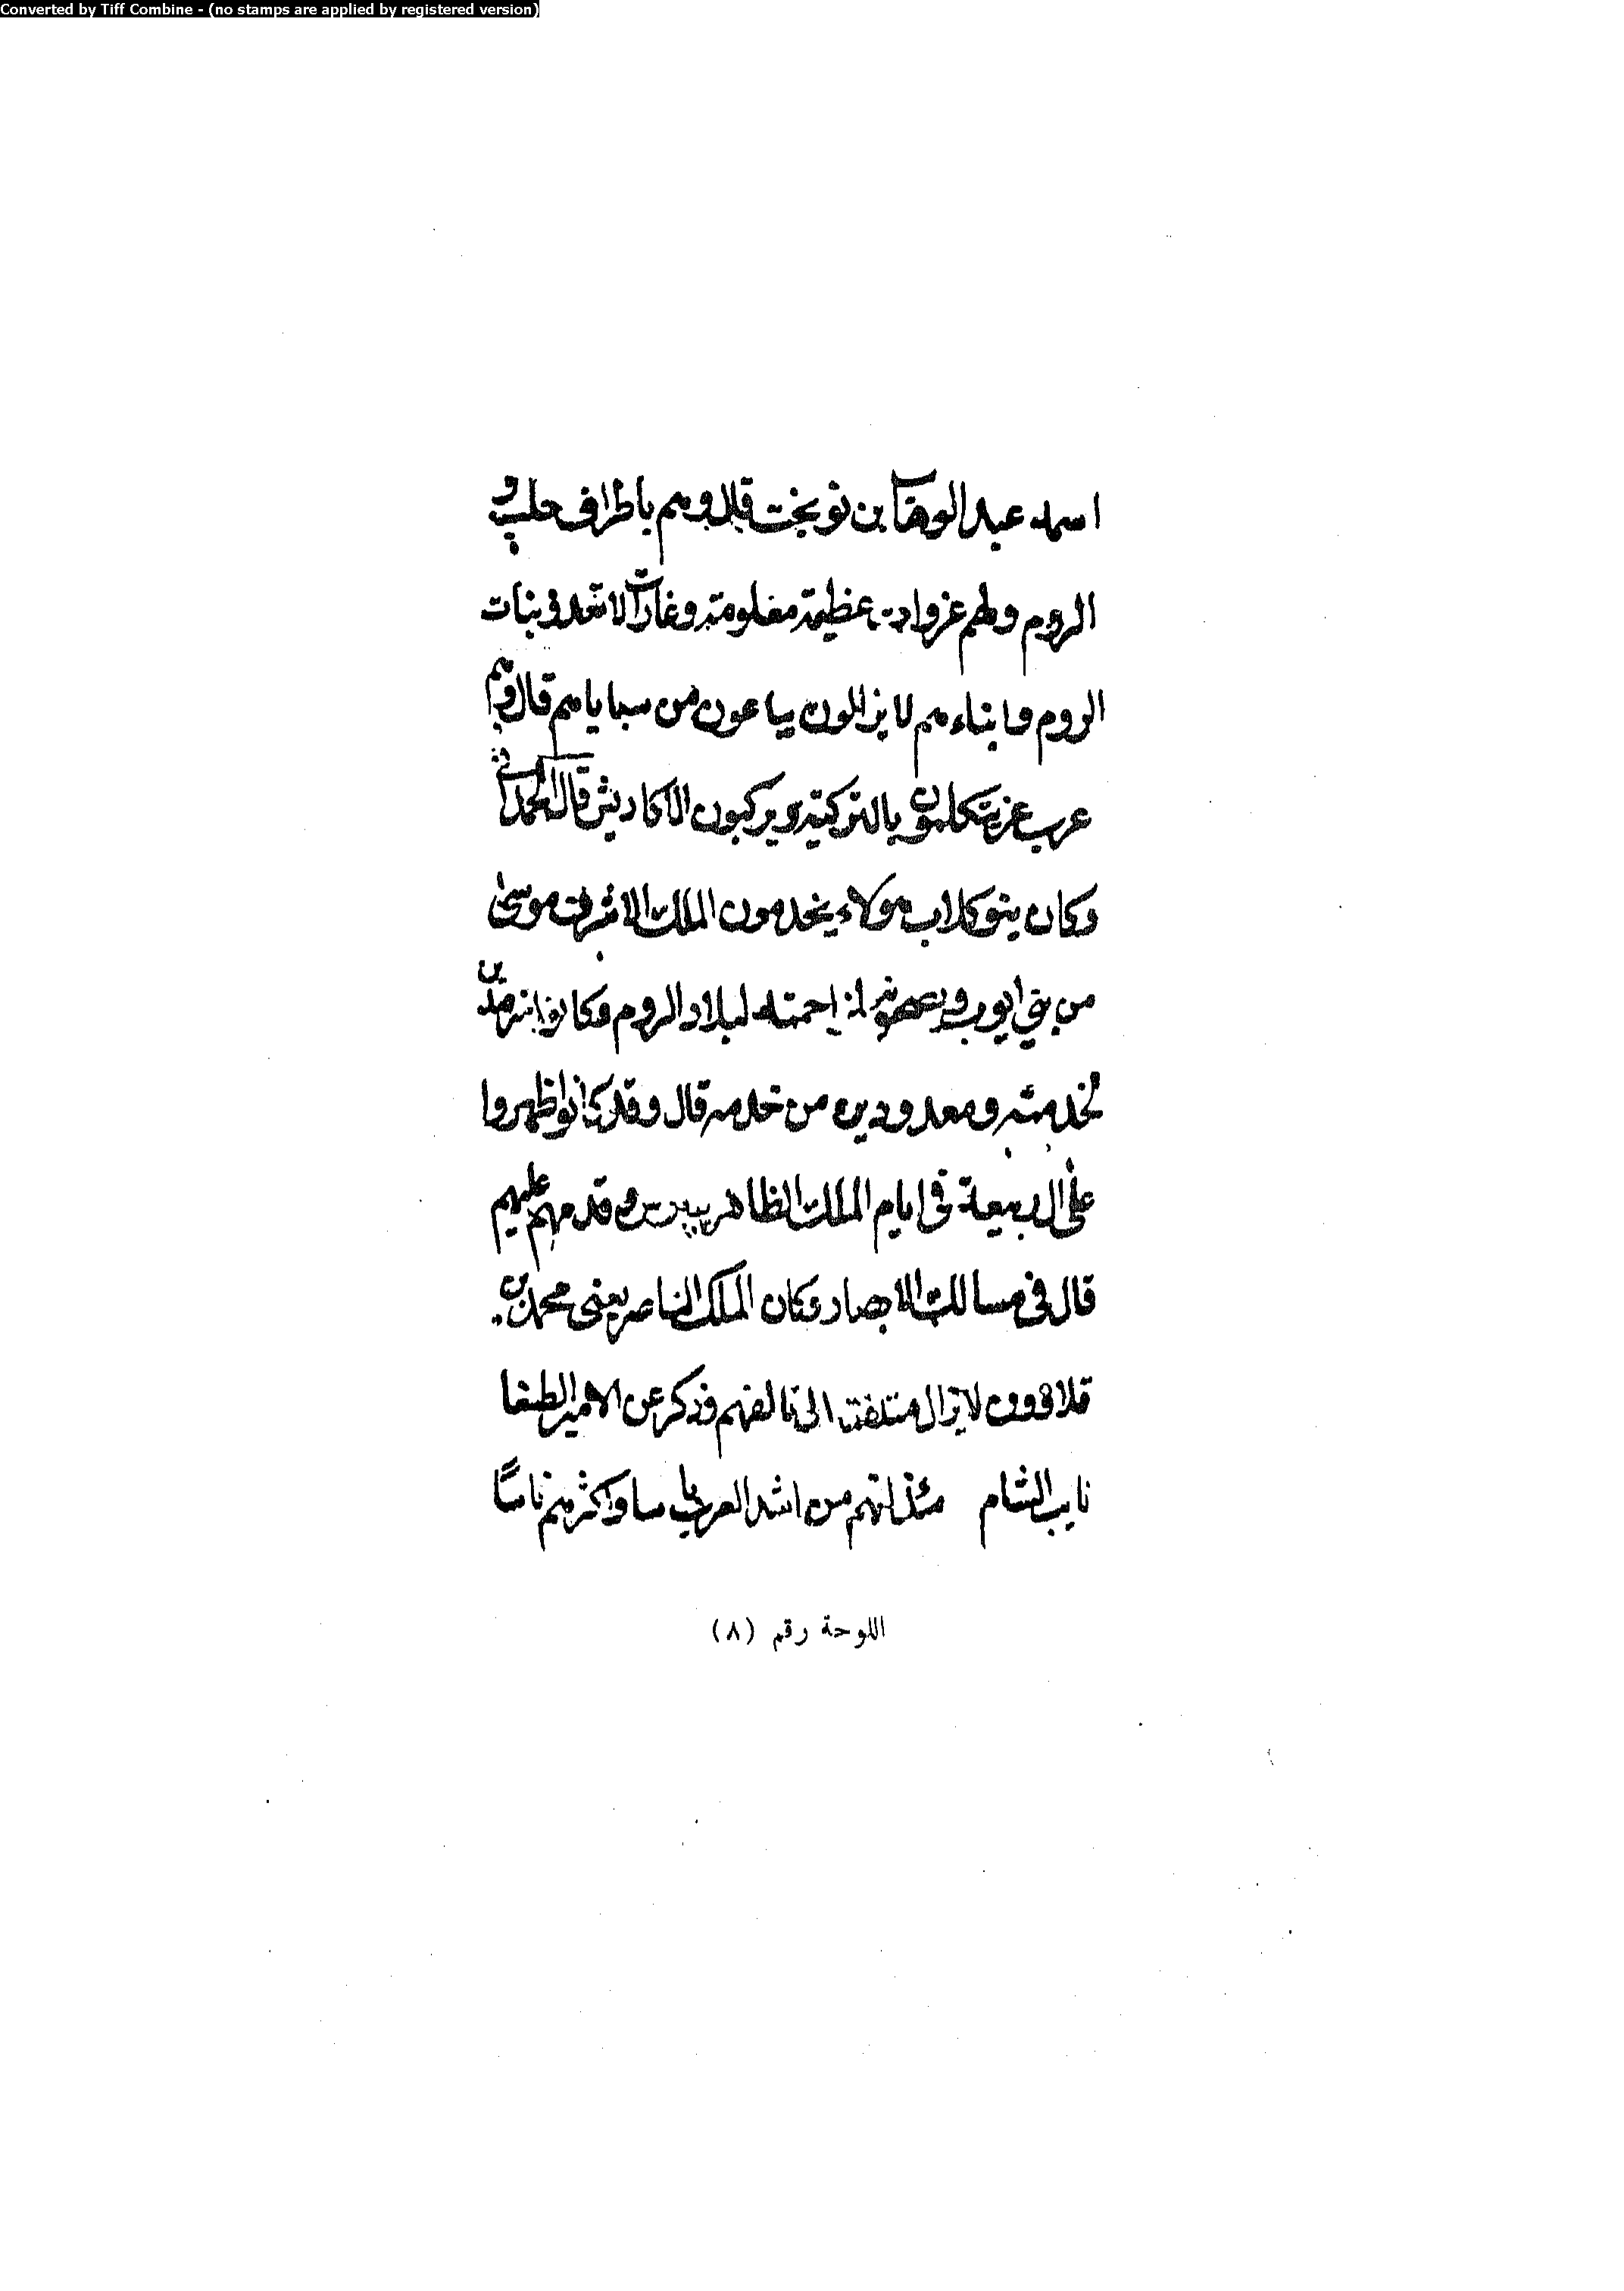 Converted by Tiff Combine - (no stamps are applied by registered version)
اسمه عبد الوهاب بن نوبخت قال وهم باطراف حلب و
الروم ولهم غزوات عظيمة معلومة وغارات لا تعد وبنات
الروم وابناءهم لا يزالون يباعون من سباياهم قال وهم
عرب غز يتكلمون بالتركية ويركبون الاكاديش قال الحمداني
وكان بنو كلاب هولاء يخدمون الملك الاشرف موسى
من بني ايوب لبلاد الروم وكانوا
لخدمته ومعدودين من خدمه قال وقد كانوا ظهروا
على ال ربيعة في ايام الملك الظاهر بيبرس وقدمهم عليهم
قال في مسالك الابصار وكان الملك الناصر يعني محمد بن
قلاوون لا يزال متلفتا الى تالفهم وذكر عن الامير الطنبغا
نايب الشام انهم من اشد العرب باسا واكثرهم ناسًا
اللوحة رقم (٨)